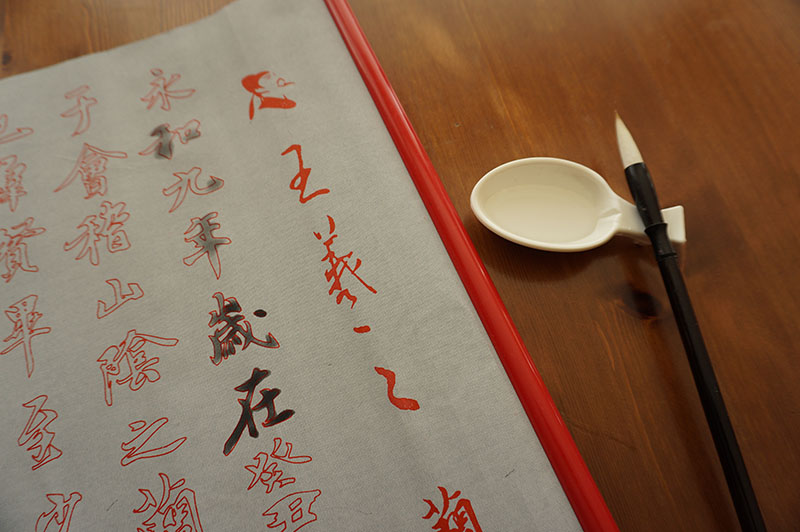 王羲之蘭
永和九年歲在癸丑
于會稽山陰之蘭
也羣賢畢至少